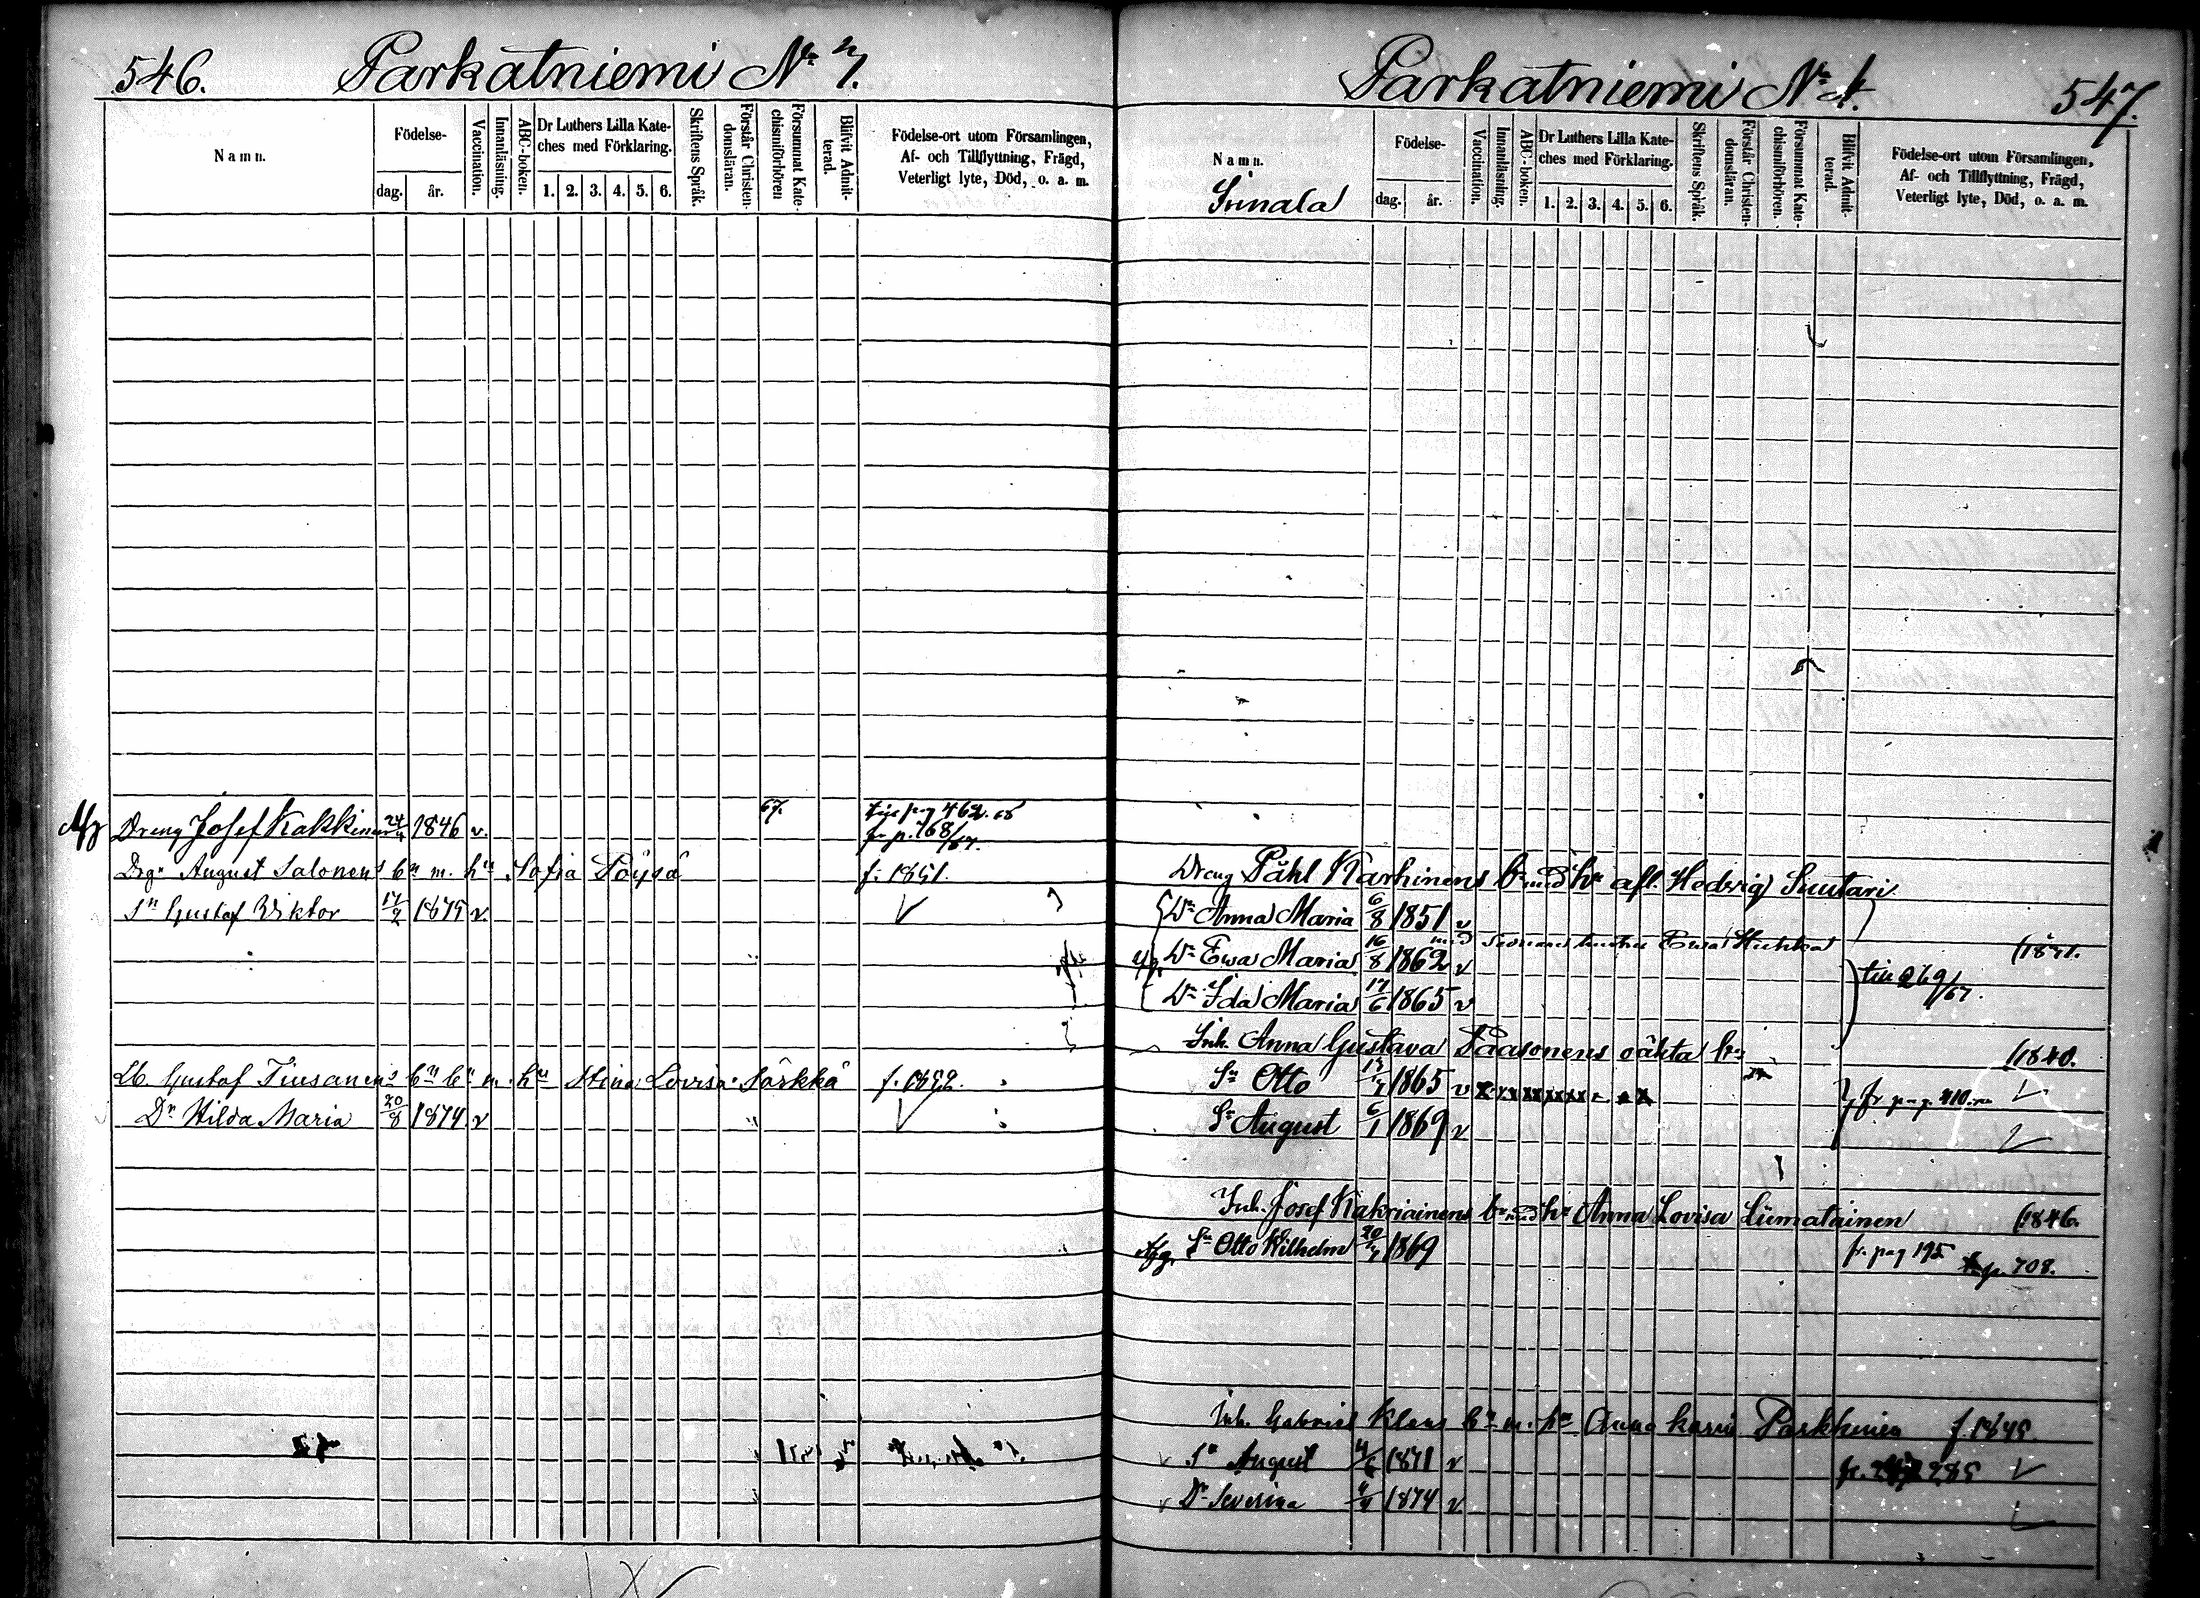 546.
Parkatniemi No 7.
Namn.
Födelse-
dag.
år.
Vaccination.
Innanläsning.
ABC-boken.
Dr Luthers Lilla Kate-
ches med Förklaring.
1. 2. 3. 4. 5. 6.
Skriftens Språk.
Förstår Christen-
domsläran.
Försummat Kate-
chismiförhören
Blifvit Admit-
terad.
Födelse-ort utom Församlingen,
Af- och Tillflyttning, Frägd,
Veterligt lyte, Död, o. a. m.
Dreng Josef Kakkinen 1846 v. 67. pag 462. 68
fr p. 168/67.
August Salonens bn m. hn Sofia Pöysä f. 1851.
Sn Gustaf Viktor 17/2 1875 v
Gustaf Tiusanens bn bn m. hn Stina Lovisa Särkkä f. 1852.
Dr Hilda Maria 20/8 1874 v
Parkatniemi No
547.
Namn.
Födelse-
dag.
år.
Vaccination.
Innanläsning.
ABC-boken.
Dr Luthers Lilla Kate-
ches med Förklaring.
1. 2. 3. 4. 5. 6.
Skriftens Språk.
Förstår Christen-
domsläran.
Försummat Kate
chismiförhören.
Blifvit Admit-
terad.
Födelse-ort utom Församlingen,
Af- och Tillflyttning, Frägd,
Veterligt lyte, Död, o. a. m.
Dreng Påhl Karhinens bn med hn afl. Hedvig Suutari
Dr Anna Maria 6/8 1851 v
med Ewa Huhka (1841.
Dr Ewa Maria 16/8 1862 v
Dr Ida Maria 17/6 1865 v 269/67.
Inh. Anna Gustava Paasonens oäkta bn (1840.
Sn Otto 1865 v fr pag. 410.
Sn August 6/1 1869 v
Inh. Josef Kakriainens bn med hn Anna Lovisa Liimatainen (1846.
Sn Otto Wilhelm 1869 fr pag 195 p. 708.
Inh. Gabriel Klens bn m. hn Anna Karin Parkkinen f. 1845.
Sn August 1871 v fr. 285
Dr Severina 1874 v